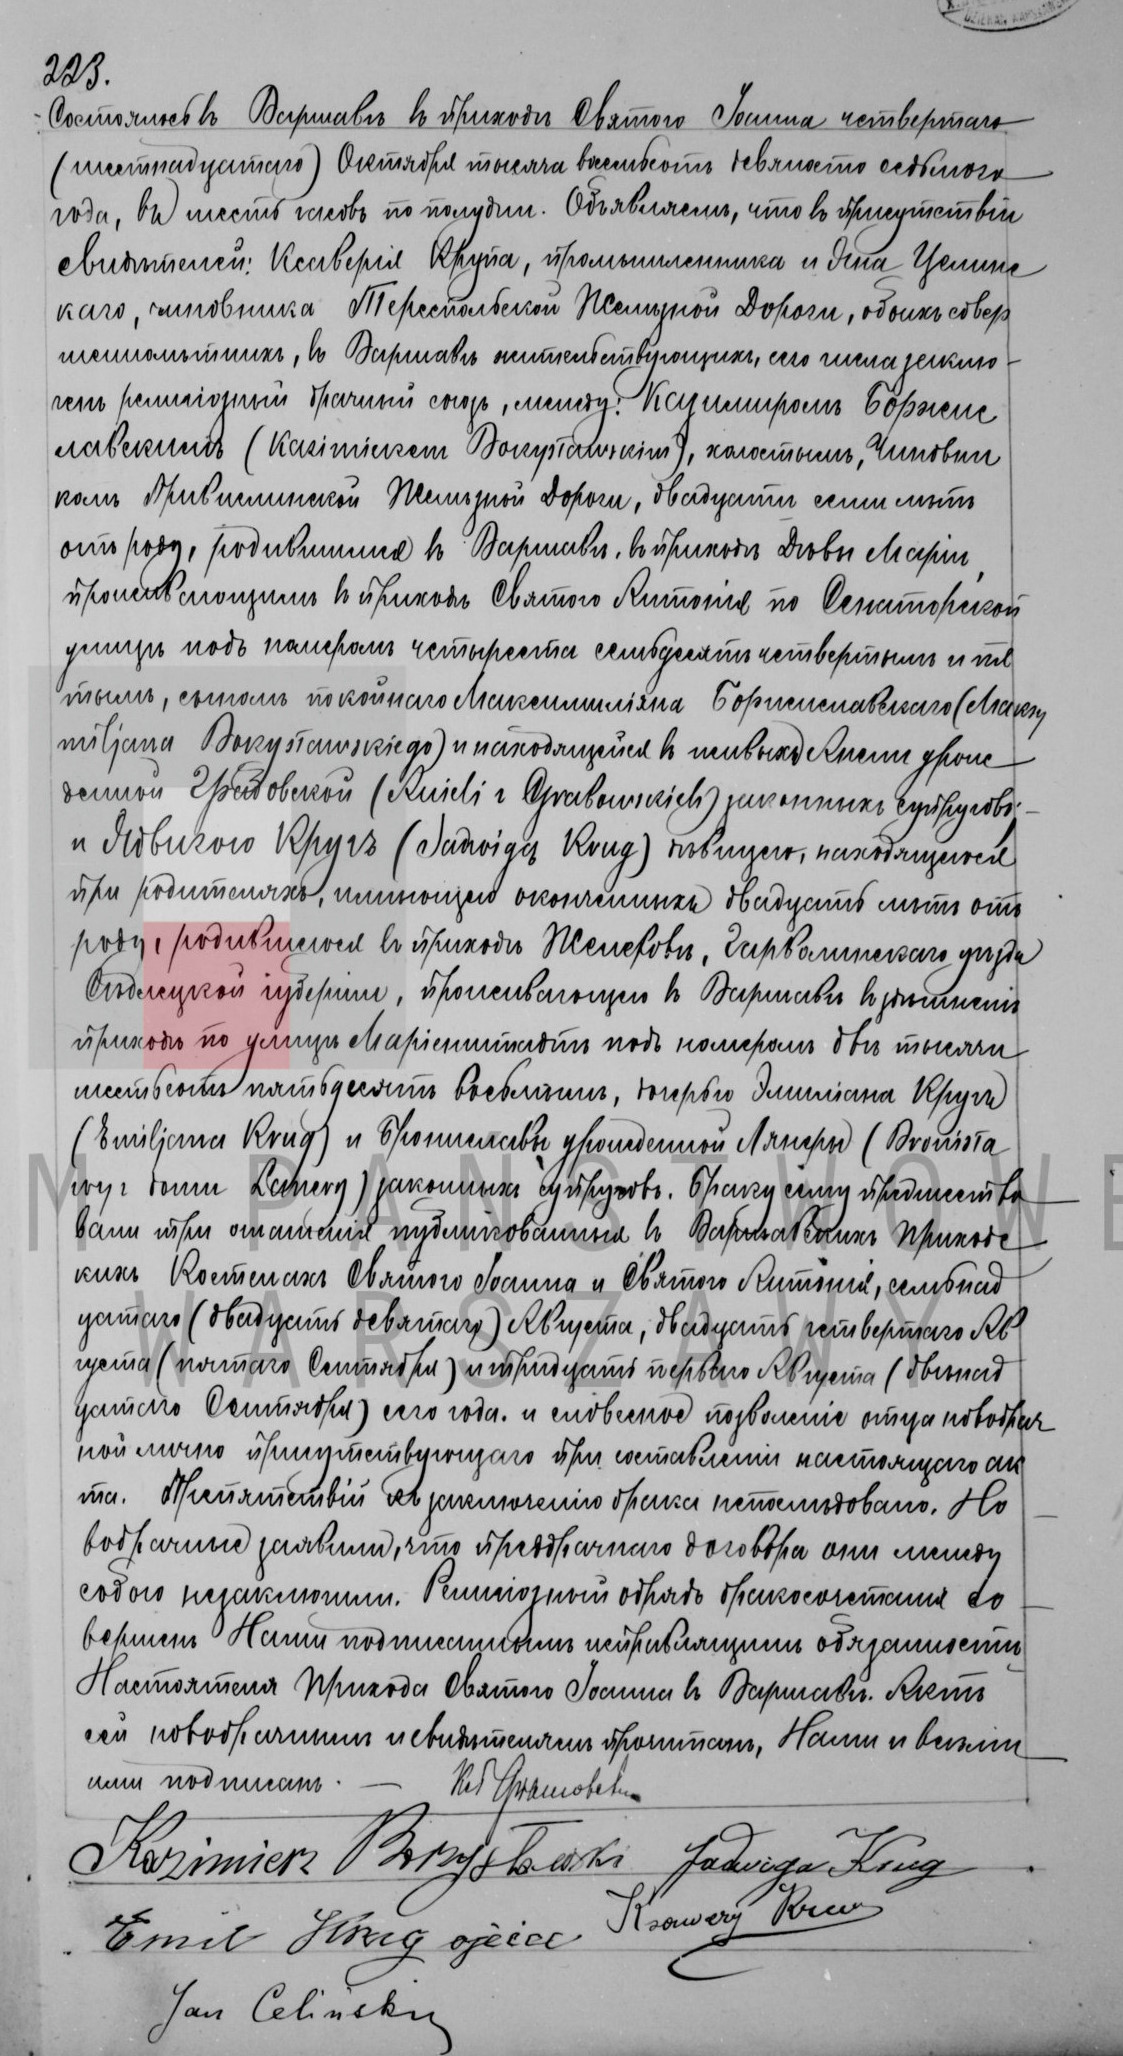 223.
Состоялось въ Варшавѣ въ приходѣ Святого Іоанна четвертаго
(шестнадцатаго) Октября тысяча восемьсотъ девяносто седьмого
года, въ шесть часовъ по полудни. Объявляемъ, что въ присутствіи
свидѣтелей: Ксаверія Круга, промышленника и Яна Целинс
каго, чиновника Тереспольской Желѣзной Дороги, обоихъ совер
шеннолѣтнихъ, въ Варшавѣ жительствующихъ, сего числа заклю-
ченъ религіозный брачный союзъ, между: Казимиромъ Боржис
лавскимъ (Kazimierzem Borzysławskim), холостымъ, Чиновни
комъ Привислинской Желѣзной Дороги, двадцати семи лѣтъ
отъ роду, родившимся въ Варшавѣ, въ приходѣ Дѣвы Маріи,
проживающимъ въ приходѣ Святого Антонія по Сенаторской
улицѣ подъ номеромъ четыреста семьдесятъ четвертымъ и пя
тымъ, сыномъ покойнаго Максимиліяна Боржиславскаго (Maksy
miljana Borzysławskiego) и находящейся въ живыхъ Анели урож
денной Грабовской (Anieli z Grabowskich) законныхъ супруговъ;-
и Ядвигою Кругъ (Jadwigą Krug) дѣвицею, находящеюся
при родителяхъ, имѣющею оконченныхъ двадцать лѣтъ отъ
роду, родившеюся въ приходѣ Желеховъ, Гарволинскаго уѣзда
Сѣдлецкой губерніи, проживающею въ Варшавѣ въ здѣшнемъ
приходѣ по улицѣ Маріенштадтъ подъ номеромъ двѣ тысячи
шестьсотъ пятьдесятъ восьмымъ, дочерью Эмиліана Кругъ
(Emiljana Krug) и Брониславы урожденной Лянеры (Bronisła
wy z domu Lanery) законныхъ супруговъ. Браку сему предшество
вали три оглашенія публикованныя въ Варшавскихъ Приходс
кихъ Костелахъ Святого Іоанна и Святого Антонія, семьнад
цатаго (двадцать девятаго) Августа, двадцать четвертаго Ав
густа (пятаго Сентября) и тридцать перваго Августа (двѣнад
цатаго Сентября) сего года. и словесное позволеніе отца новобрач
ной лично присутствующаго при составленіи настоящаго ак
та. Препятствій къ заключенію брака непослѣдовало. Но
вобрачные заявили, что предбрачнаго договора они между
собою незаключили. Религіозный обрядъ бракосочетанія со
вершенъ Нами подписаннымъ исправляющимъ обязанность
Настоятеля Прихода Святого Іоанна въ Варшавѣ. Актъ
сей новобрачнымъ и свидѣтелямъ прочитанъ, Нами и всѣми
ими подписанъ. —
Kazimierz Borzysławski Jadwiga Krug
Emil Krug ojciec Ksawery Krug
Jan Celiński
M PAŃSTWOWE
WARSZAWY